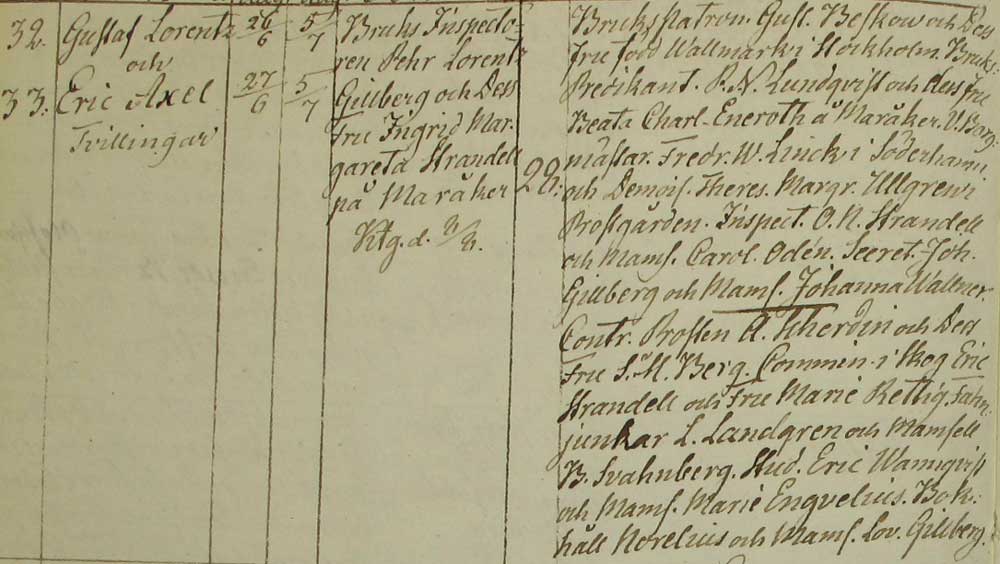 32. Gustaf Lorentz 26/6 5/7
och
33. Eric Axel 27/6 5/7
Tvillingar
Bruks Inspecto-
ren Pehr Lorentz
Gillberg och Dess
Fru Ingrid Mar-
gareta Strandell
på Maråker
Ktg. d.
28.
Bruks Patron. Gust. Beskow och Dess
Fru född Wallmark i Stockholm. Bruks-
Predikant. P. N. Lundqvist och dess Fru
Beata Charl. Eneroth å Maråker. V. Borg-
mästar. Fredr. W. Linck i Söderhamn
och Demois. Theres. Margr. Ullgren i
Prostgården. Inspect. O. N. Strandell
och Mams. Carol. Odén. Secret. Joh.
Gillberg och Mams. Johanna Wallner.
Contr. Prosten A. Scherdin och Dess
Fru S. M. Berg. Commin. i Skog Eric
Strandell och Fru Marie Rettig. Fahn-
junkar L. Landgren och Mamsell
B. Svahnberg. Stud. Eric Wannqvist
och Mams. Marie Engvelius. Bok-
håll Norelius och Mams. Lov. Gillberg.